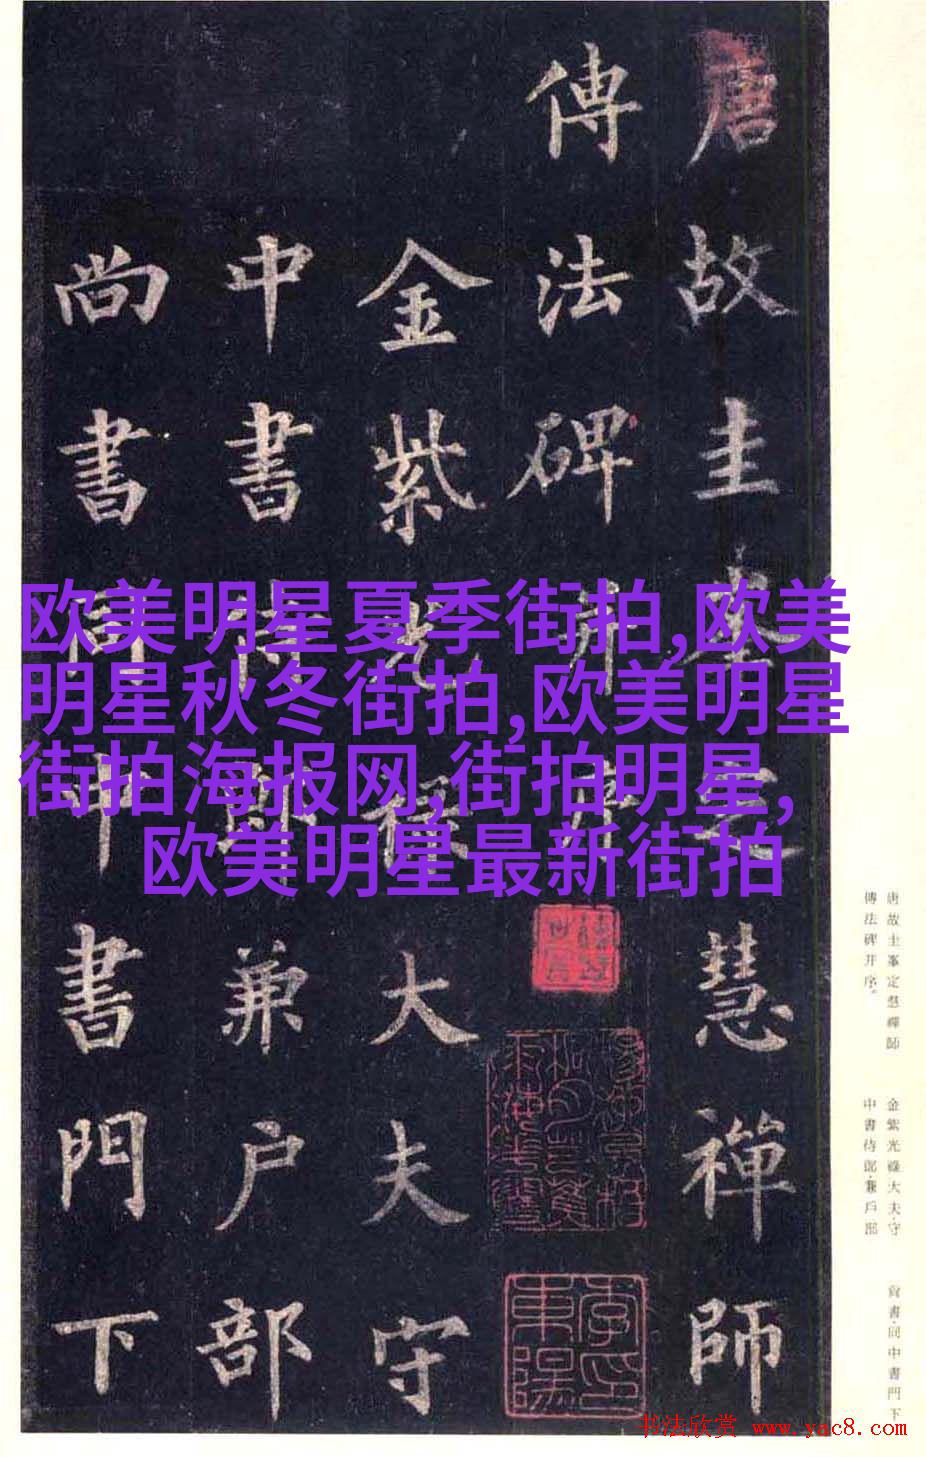 唐故圭峯定慧禪師
傳法碑并序
金紫光祿大夫守
中書侍郎兼户部
尚書同中書門下
欧美明星夏季街拍,欧美
明星秋冬街拍,欧美明星
街拍海报网,街拍明星,
欧美明星最新街拍
唐故圭峯定慧禪師
傳法碑并序。
金紫光祿大夫·守
中書侍郎·兼戶部
尚書·同中書門下
書法欣赏 www.yac8.com